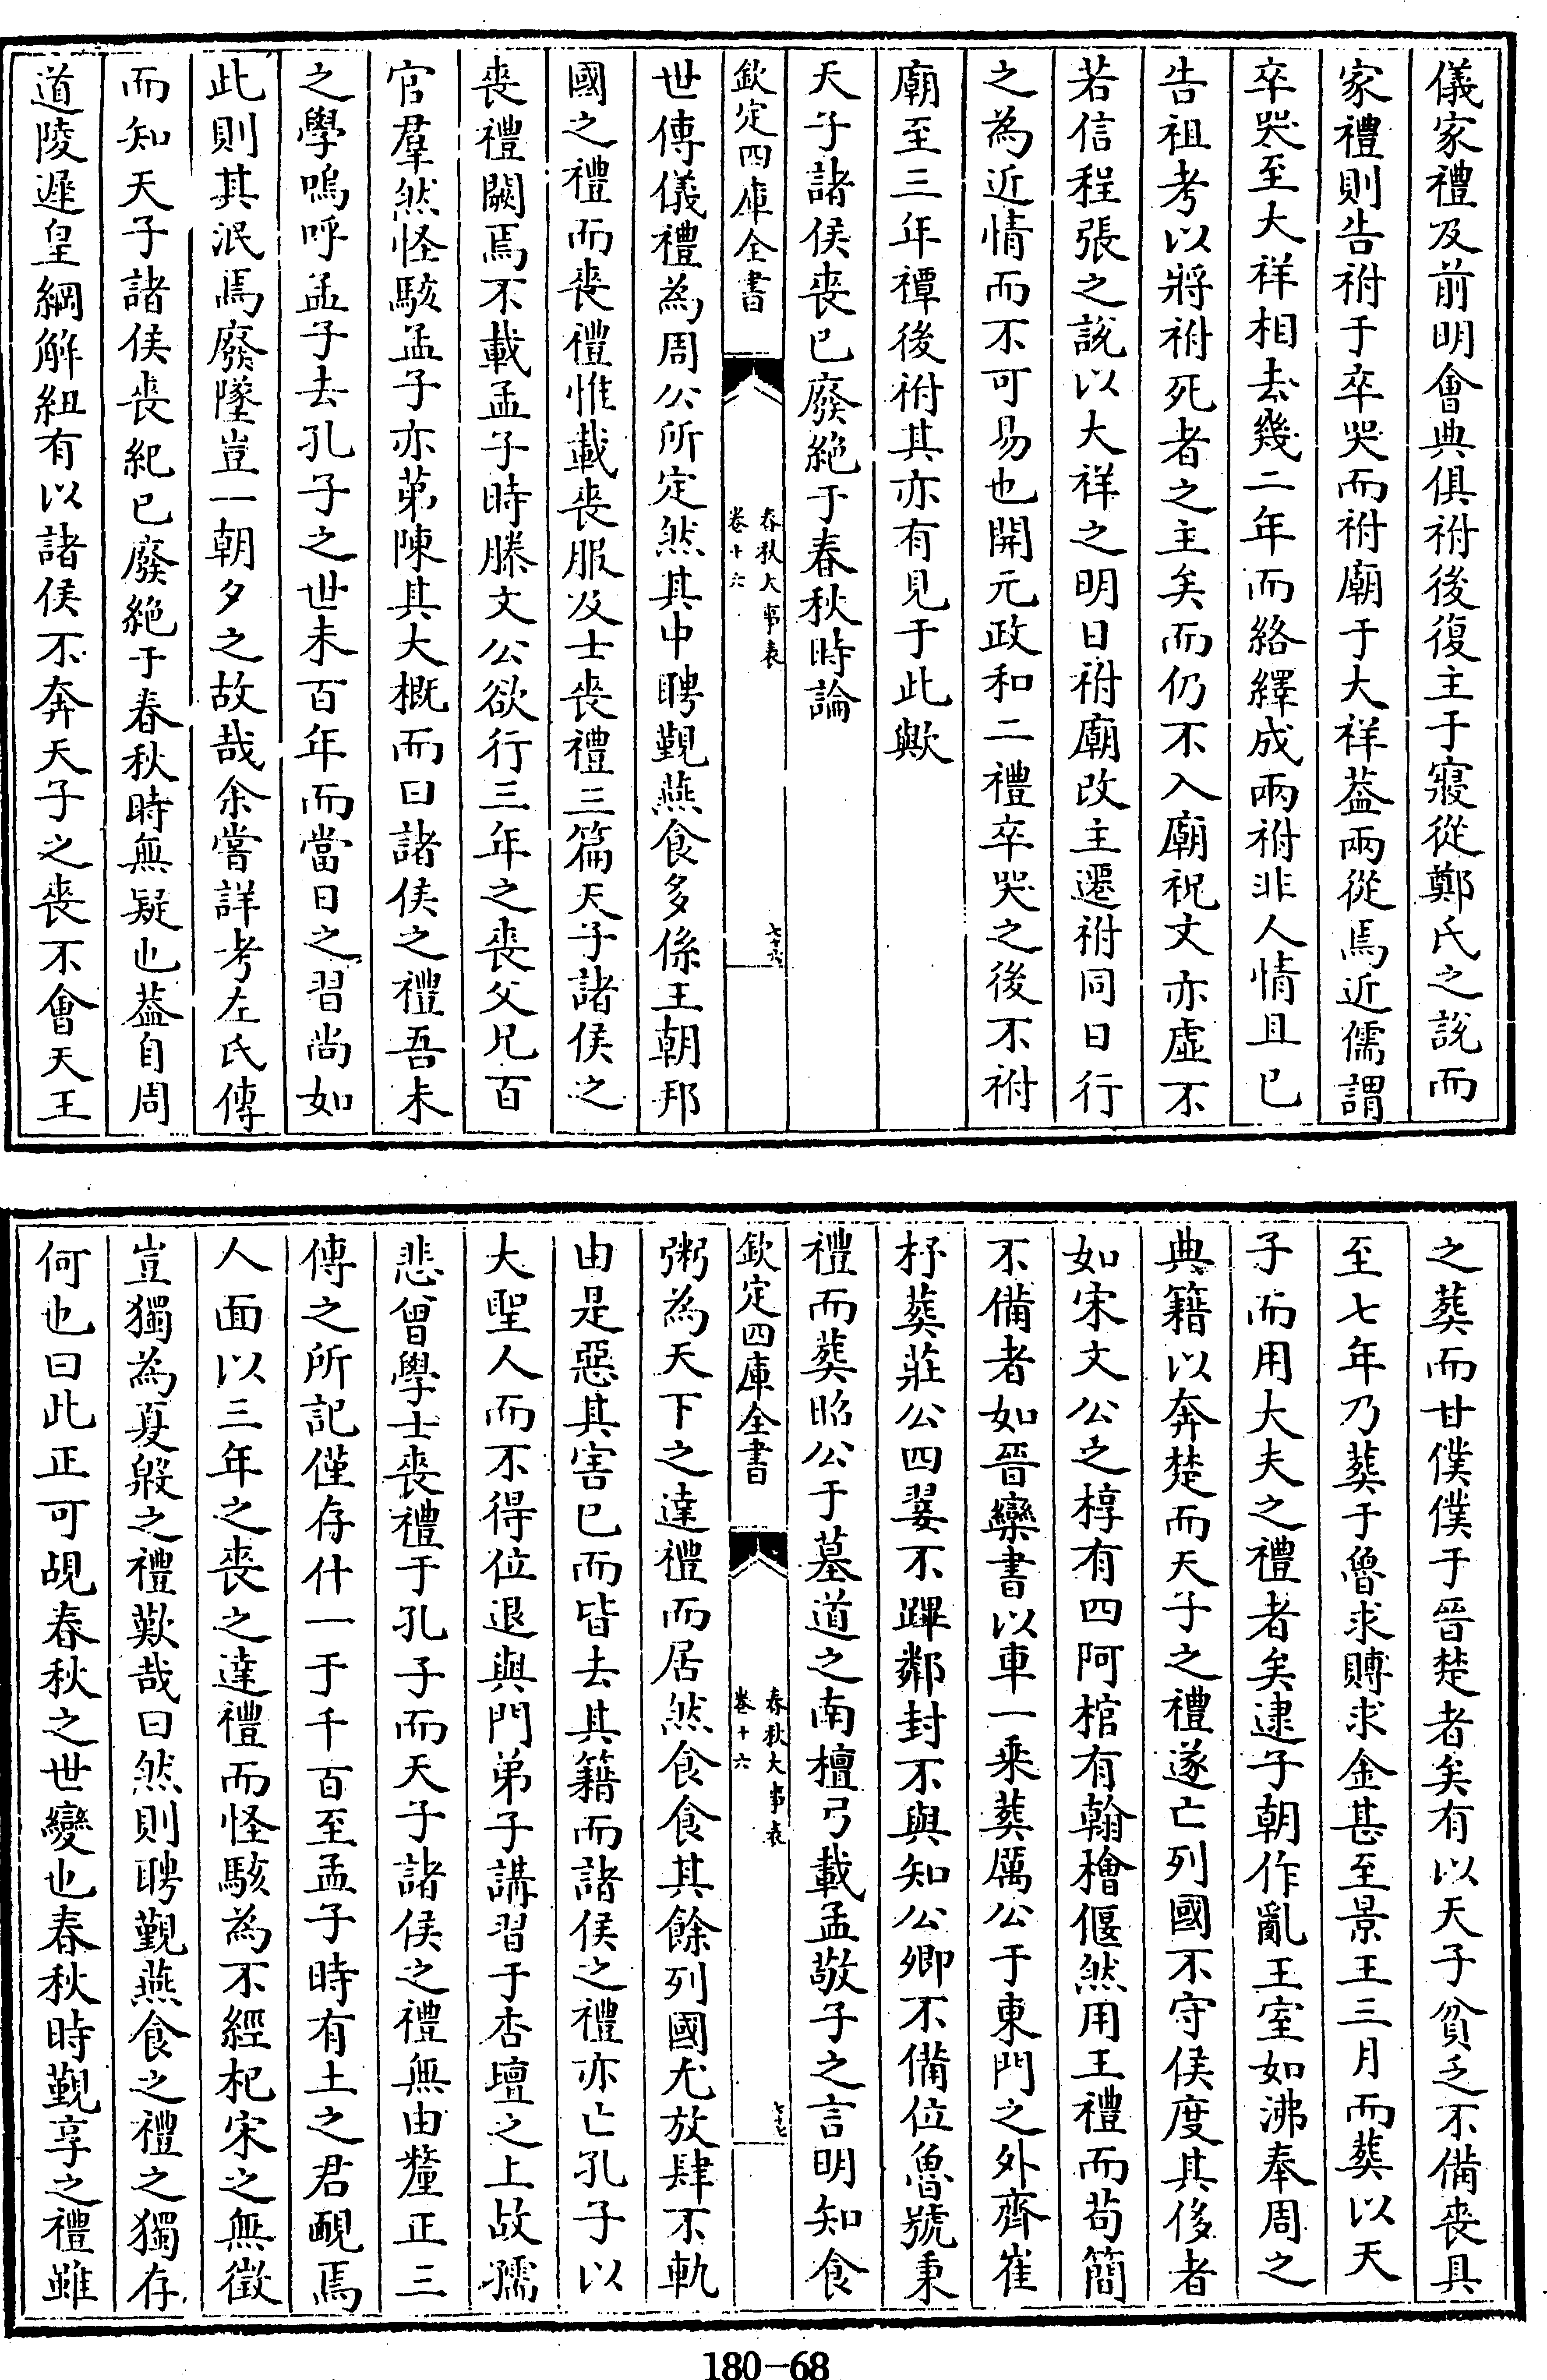 儀家禮及前明會典俱祔後復主于寢從鄭氏之說而
家禮則告祔于卒哭而祔廟于大祥葢兩從焉近儒謂
卒哭至大祥相去幾二年而絡繹成兩祔非人情且已
告祖考以將祔死者之主矣而仍不入廟祝文亦虛不
若信程張之說以大祥之明日祔廟改主遷祔同日行
之為近情而不可易也開元政和二禮卒哭之後不祔
廟至三年禫後祔其亦有見于此歟
天子諸侯喪已廢絶于春秋時論
欽定四庫全書
春秋大事表
卷十六
七十六
世傳儀禮為周公所定然其中聘覲燕食多係王朝邦
國之禮而喪禮惟載喪服及士喪禮三篇天子諸侯之
喪禮闕焉不載孟子時滕文公欲行三年之喪父兄百
官羣然怪駭孟子亦苐陳其大概而曰諸侯之禮吾未
之學嗚呼孟子去孔子之世未百年而當日之習尚如
此則其泯焉廢墜豈一朝夕之故哉余嘗詳考左氏傳
而知天子諸侯喪紀已廢絶于春秋時無疑也葢自周
道陵遲皇綱解紐有以諸侯不奔天子之喪不會天王
之葬而甘僕僕于晉楚者矣有以天子貧乏不備喪具
至七年乃葬于魯求賻求金甚至景王三月而葬以天
子而用大夫之禮者矣逮子朝作亂王室如沸奉周之
典籍以奔楚而天子之禮遂亡列國不守侯度其侈者
如宋文公之椁有四阿棺有翰檜偃然用王禮而苟簡
不備者如晉欒書以車一乘葬厲公于東門之外齊崔
杼葬莊公四翣不蹕鄰封不與知公卿不備位魯號秉
禮而葬昭公于墓道之南檀弓載孟敬子之言明知食
欽定四庫全書
春秋大事表
卷十六
七十七
粥為天下之達禮而居然食食其餘列國尤放肆不軌
由是惡其害已而皆去其籍而諸侯之禮亦亡孔子以
大聖人而不得位退與門弟子講習于杏壇之上故孺
悲曾學士喪禮于孔子而天子諸侯之禮無由釐正三
傳之所記僅存什一于千百至孟子時有土之君靦焉
人面以三年之喪之達禮而怪駭為不經杞宋之無徵
豈獨為夏殷之禮歎哉曰然則聘覲燕食之禮之獨存
何也曰此正可覘春秋之世變也春秋時覲享之禮雖
180-68